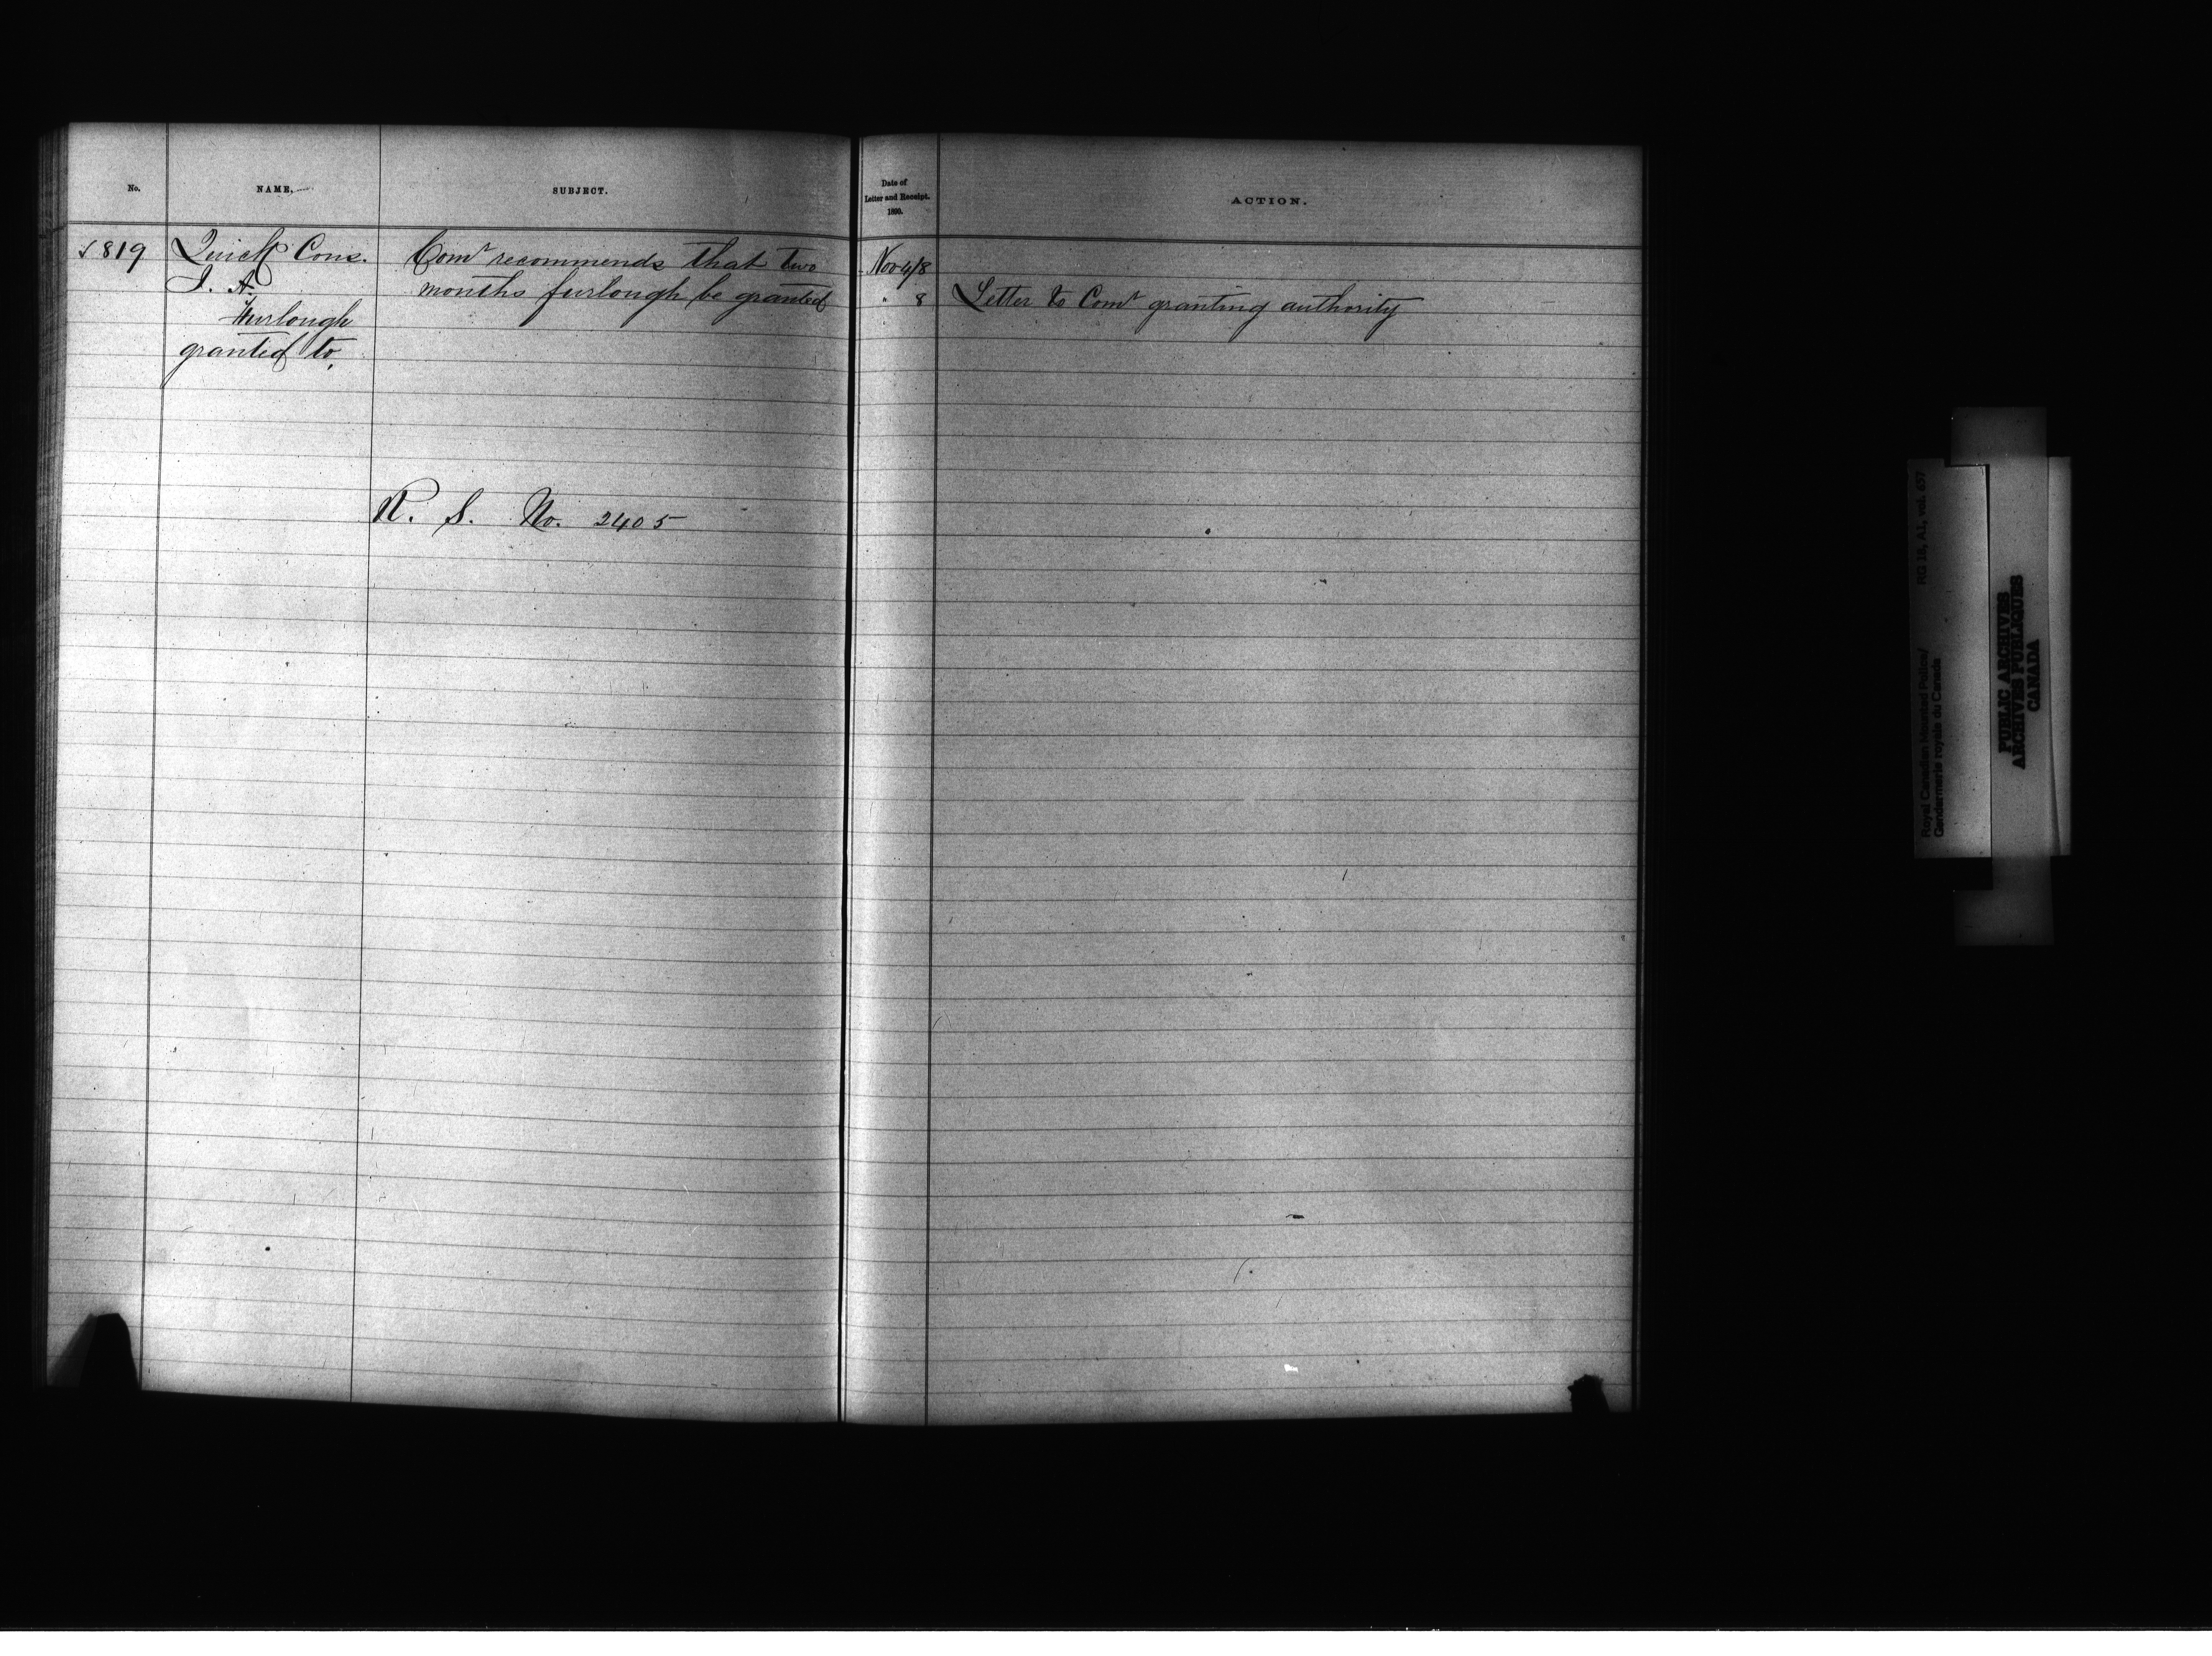 No.
NAME,
SUBJECT.
Date of
Letter and Receipt.
1890.
ACTION.
√ 819
Quick Cons.
J. A.
Furlough
granted to,
Comr recommends that two
months furlough be granted
Nov 4/8
" 8
Letter to Comr granting authority
R. S. No. 2405
Royal Canadian Mounted Police/
Gendarmerie royale du Canada
RG 18, A1, vol. 657
PUBLIC ARCHIVES
ARCHIVES PUBLIQUES
CANADA